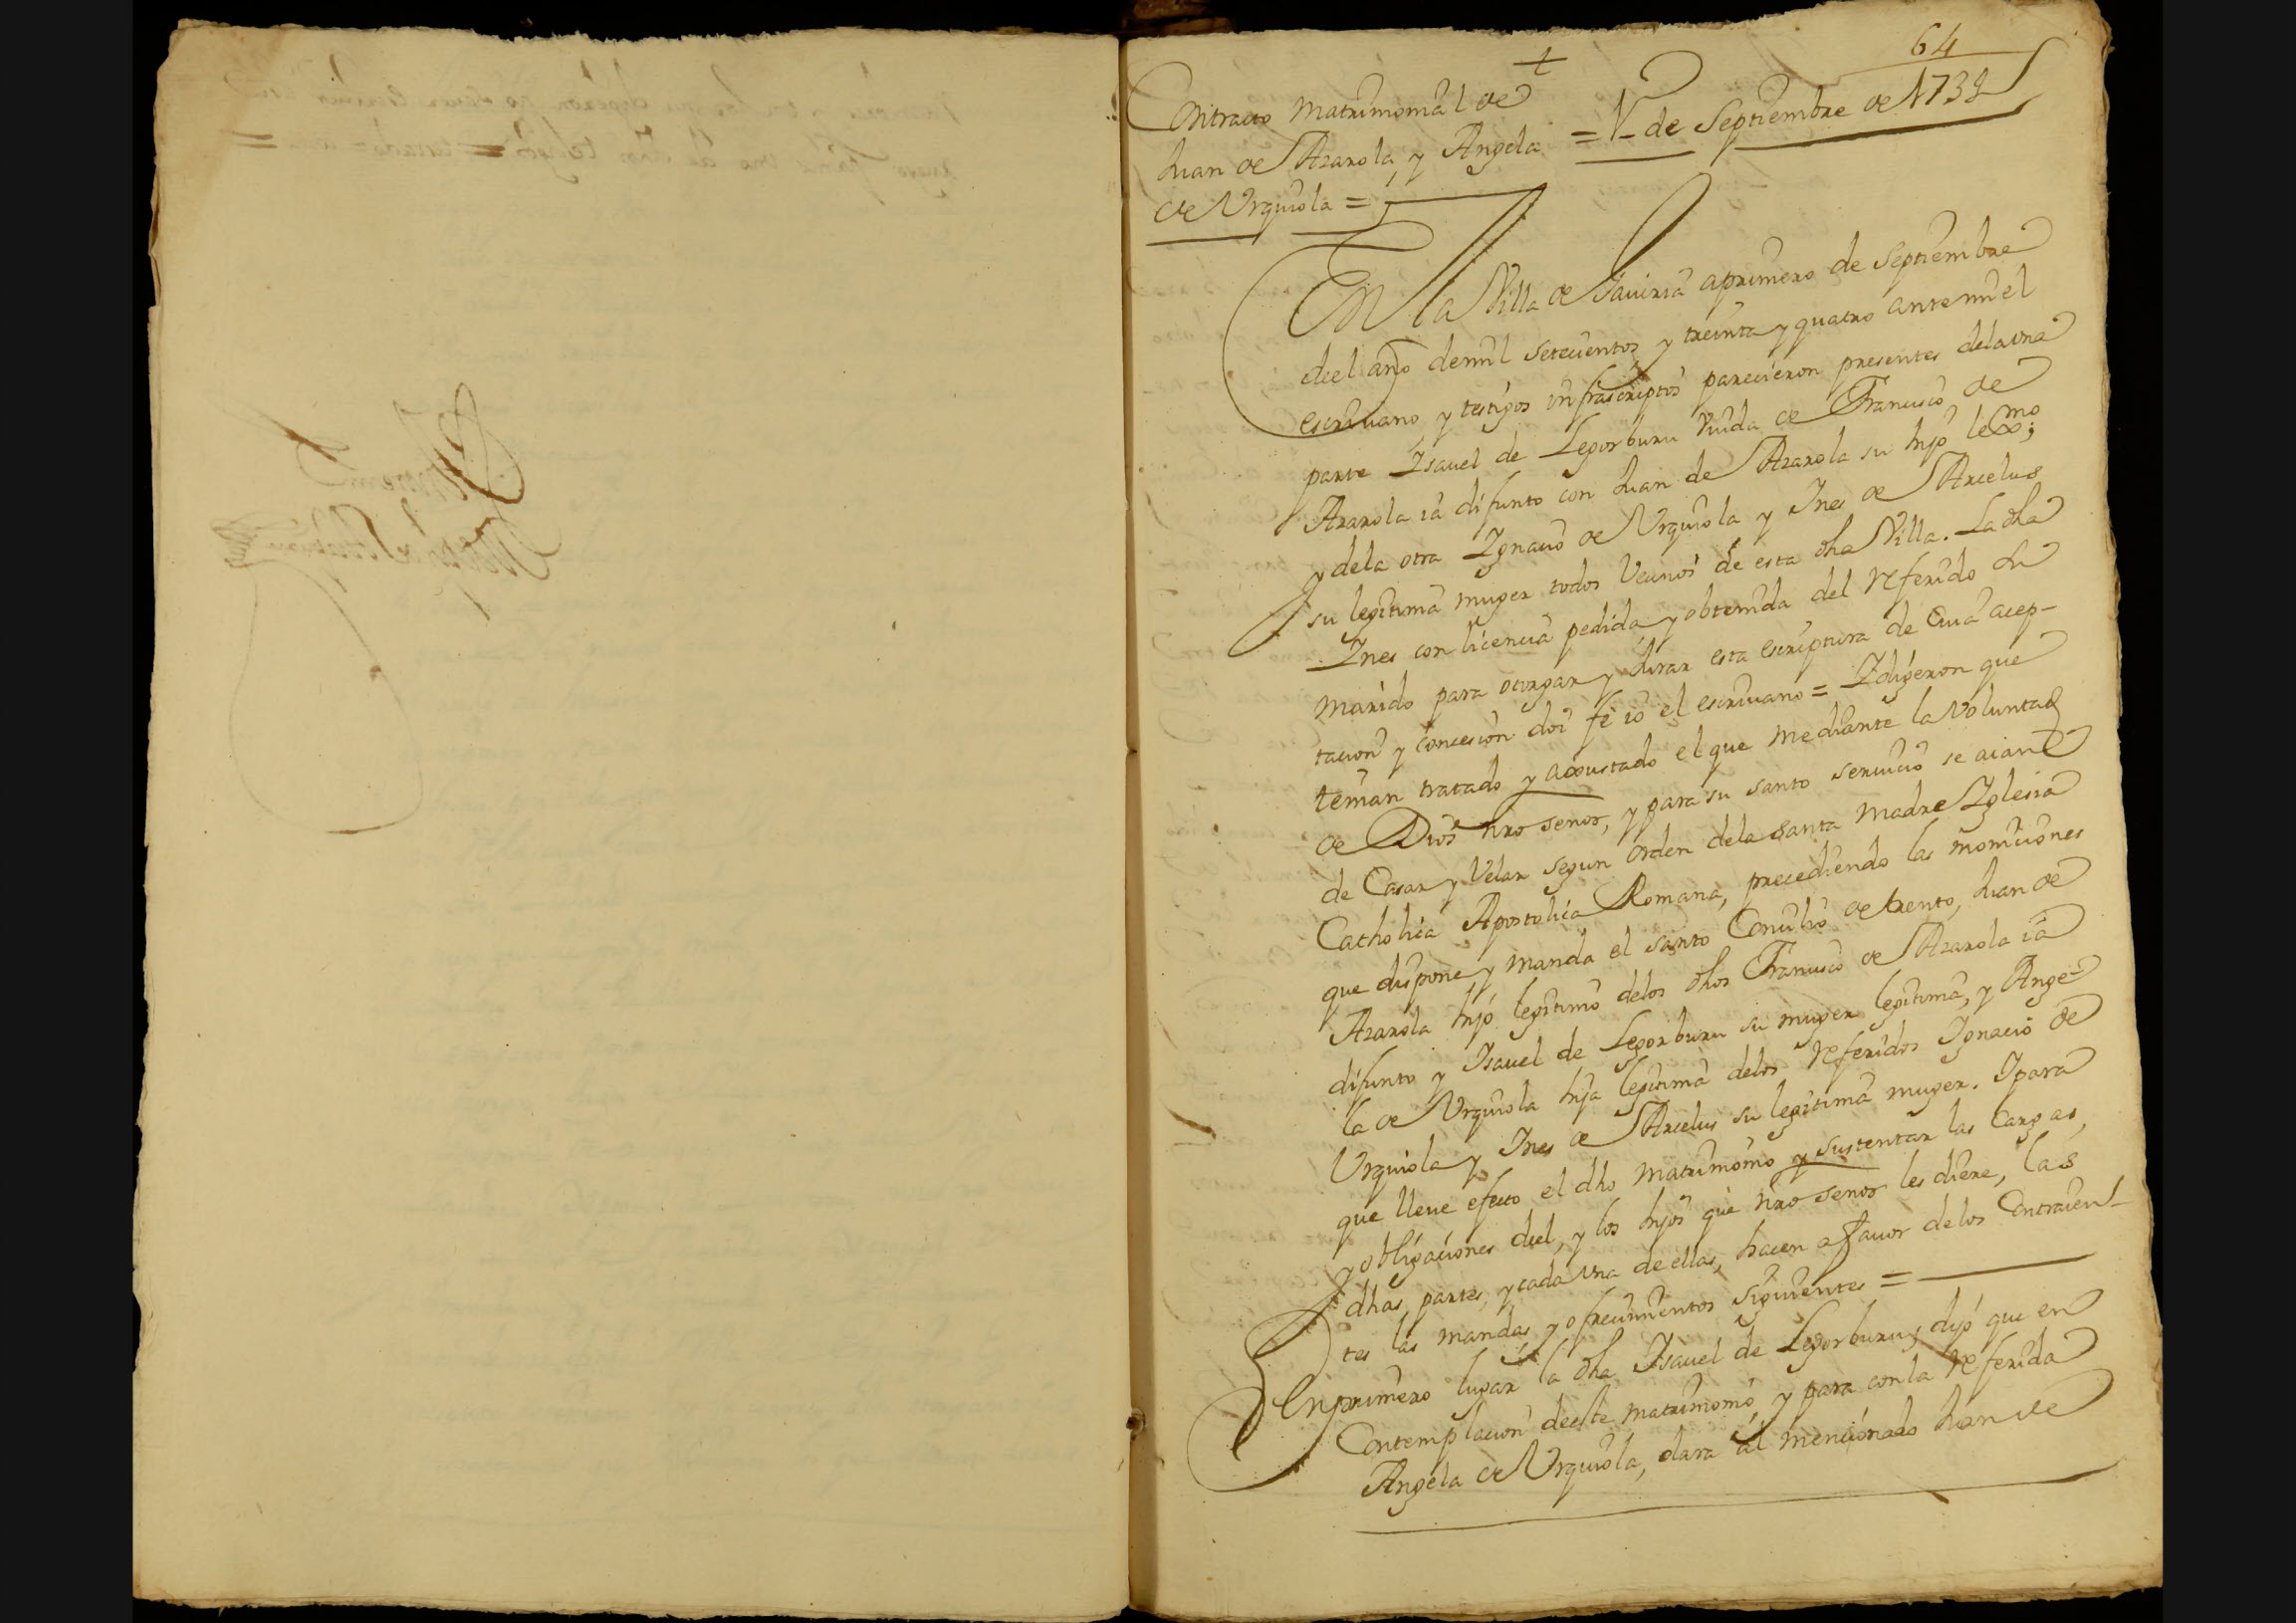 64
+
Contracto Matrimonial de
Juan de Azarola, y Angela = 1 de Septiembre de 1734
de Urquiola =
En la Villa de Gaviria a primero de Septiembre
de el año de mil setecientos y treinta y quatro ante mi el
escrivano y testigos infrascriptos parecieron presentes de la una
parte Isavel de Legorburu Viuda de Francisco de
Azarola ia difunto con Juan de Azarola su hijo lexmo;
y de la otra Ignacio de Urquiola y Ines de Arcelus
su legitima muger todos Vecinos de esta dha Villa. La dha
Ines con licencia pedida y obtenida del referido su
marido para otorgar y Jurar esta escriptura de Cuia acep-
tacion y concesion doi fe io el escrivano = I digeron que
tenian tratado y ajustado el que mediante la Voluntad
de Dios nro señor, y para su santo servicio se aian
de Casar y Velar segun Orden de la santa Madre Iglesia
Catholica Apostolica Romana, precediendo las moniciones
que dispone y manda el santo Concilio de trento, Juan de
Azarola hijo legitimo de los dhos Francisco de Azarola ia
difunto y Isavel de Legorburu su muger legitima, y Ange-
la de Urquiola hija legitima de los referidos Ignacio de
Urquiola y Ines de Arcelus su legitima muger. I para
que lleve efecto el dho Matrimonio y sustentar las Cargas,
y obligaciones de el, y los hijos que nro señor les diere, las
dhas partes, y cada una de ellas, hacen a favor de los Contraien-
tes las mandas y ofrecimientos siguientes =
En primero lugar la dha Isavel de Legorburu, dijo que en
Contemplacion de este matrimonio, y para con la referida
Angela de Urquiola, dara al mencionado Juan de